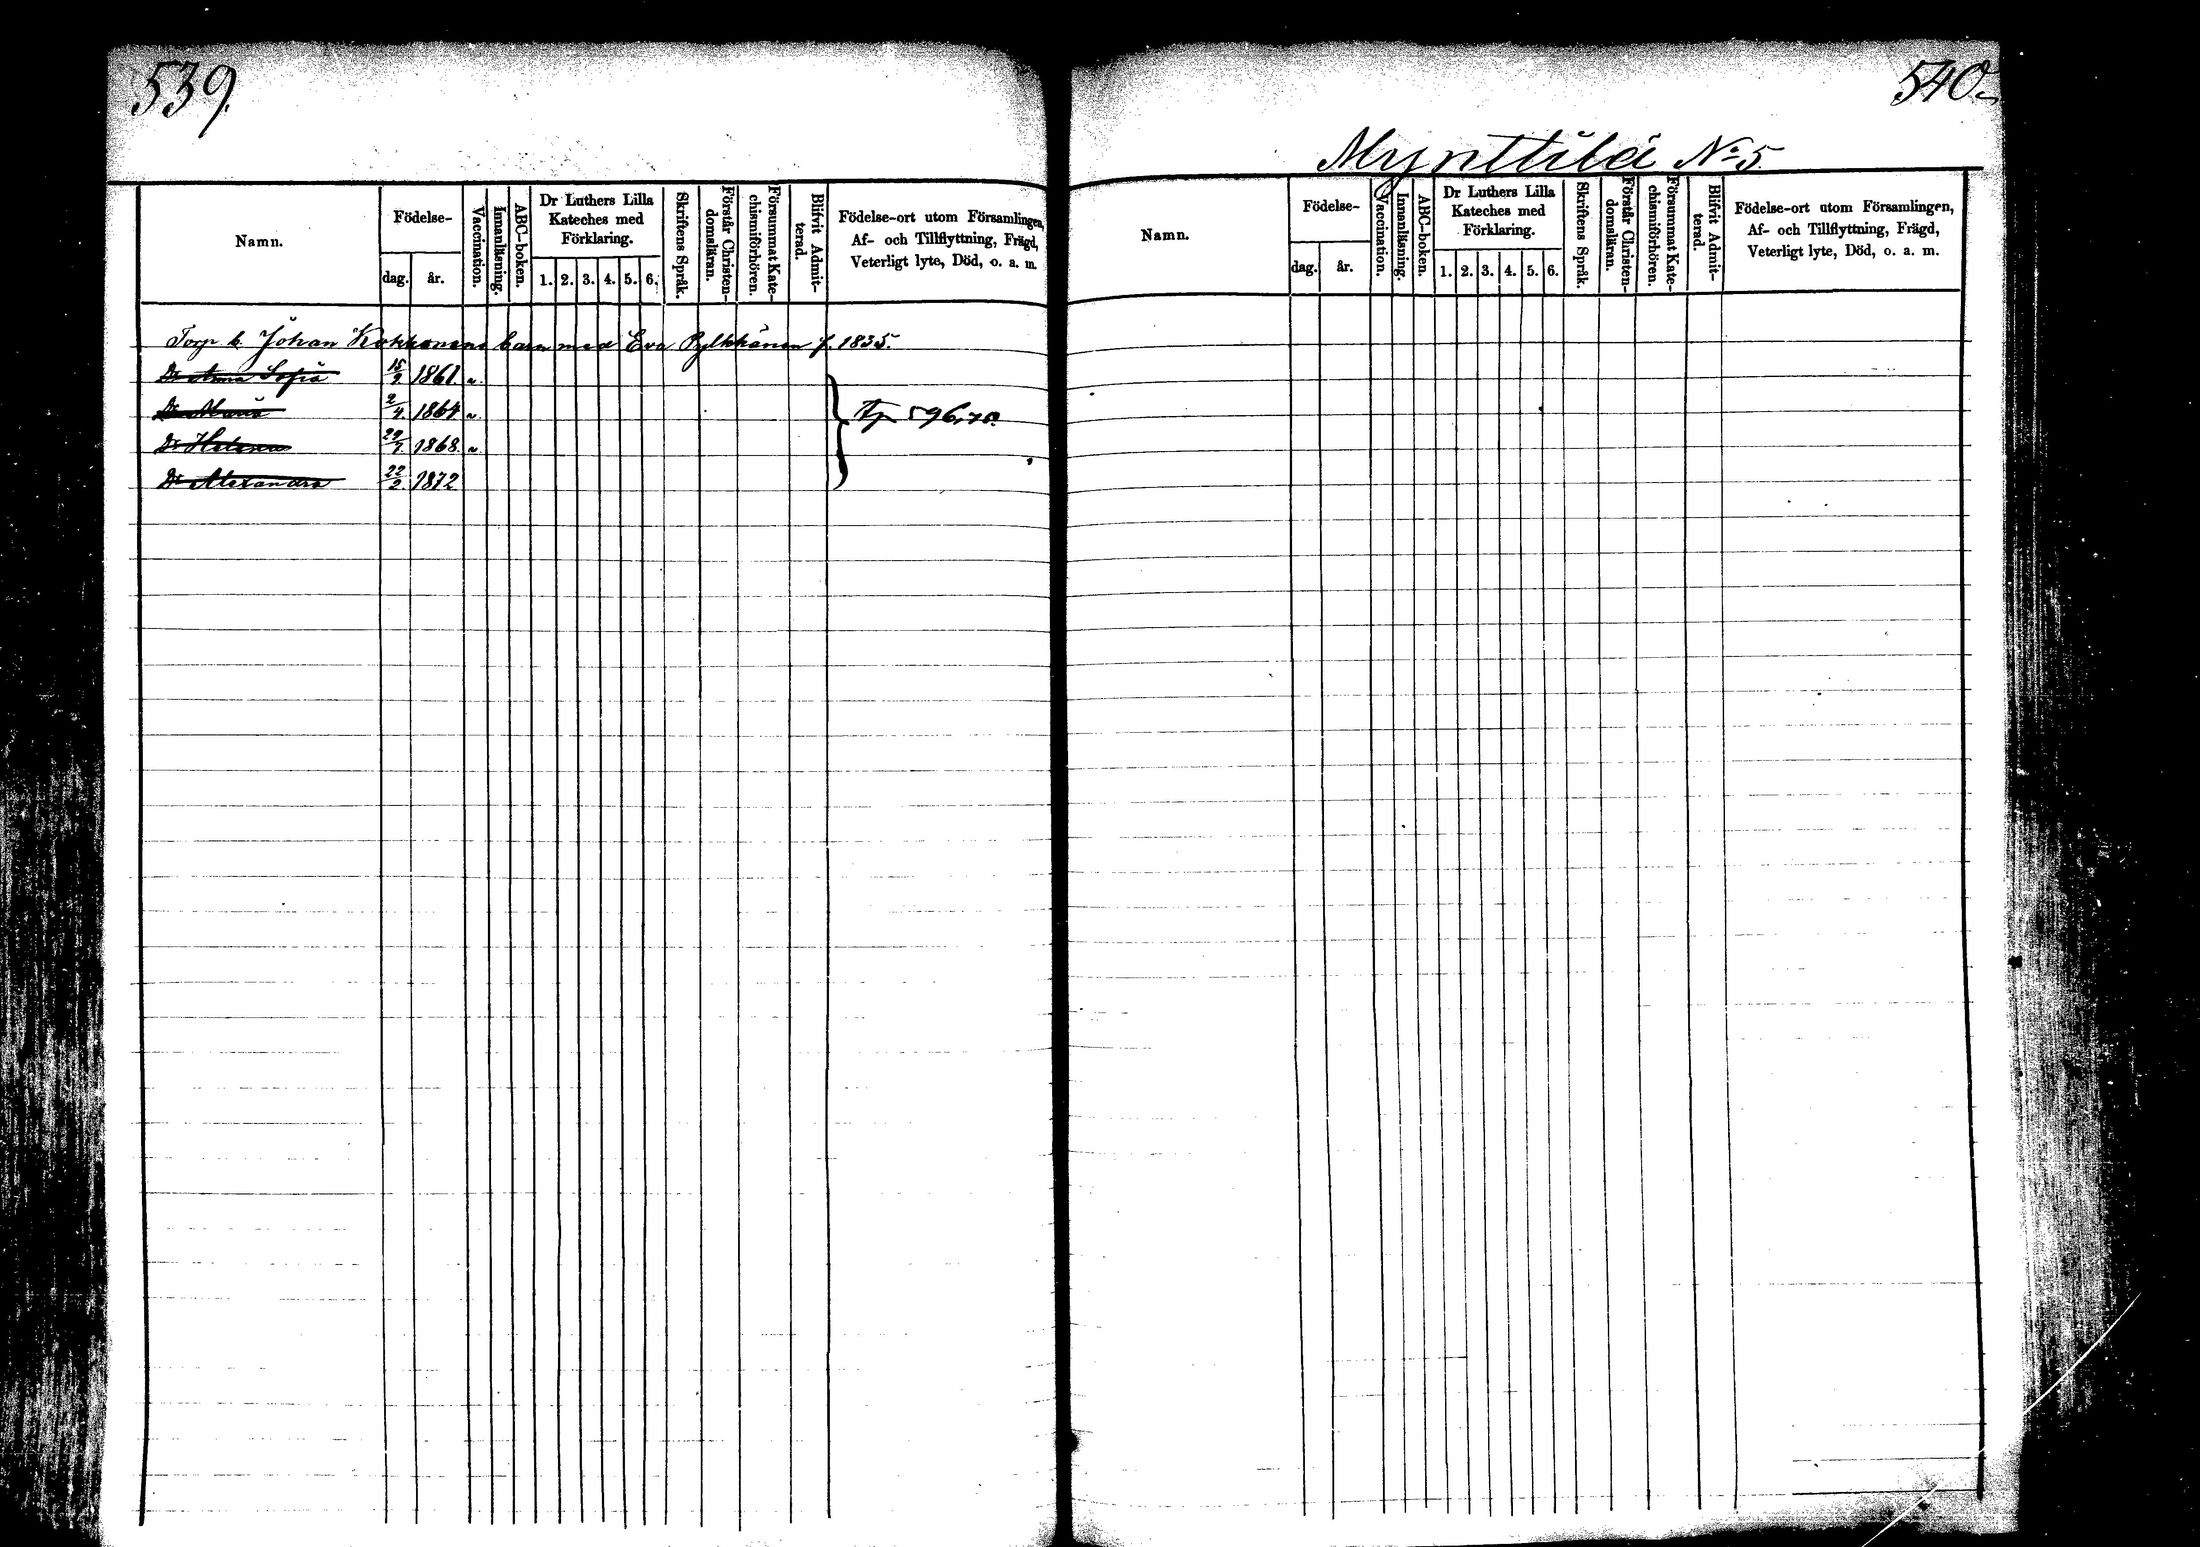 539.
Namn.
Födelse-
dag.
år.
Vaccination.
Innanläsning.
ABC-boken.
Dr Luthers Lilla
Kateches med
Förklaring.
1. 2. 3. 4. 5. 6.
Skriftens Språk.
Förstår Christen-
domsläran.
Försummat Kate-
chismiförhören.
Blifvit Admit-
terad.
Födelse-ort utom Församlingen,
Af- och Tillflyttning, Frägd,
Veterligt lyte, Död, o. a. m.
Torp b. Johan Kokkonens barn med Eva Pylkkänen f. 1835.
Dr Anna Sofia 15/9 1861. v.
Dr Maria 2/4. 1864 v.
Dr Helena 29/7. 1868. v
Dr Alexandra 22/2. 1872
596,
540.
Mynttilä No 5.
Namn.
Födelse-
dag.
år.
Vaccination.
Innanläsning.
ABC-boken.
Dr Luthers Lilla
Kateches med
Förklaring.
1. 2. 3. 4. 5. 6.
Skriftens Språk.
Förstår Christen-
domsläran.
Försummat Kate-
chismiförhören.
Blifvit Admit-
terad.
Födelse-ort utom Församlingen,
Af- och Tillflyttning, Frägd,
Veterligt lyte, Död, o. a. m.